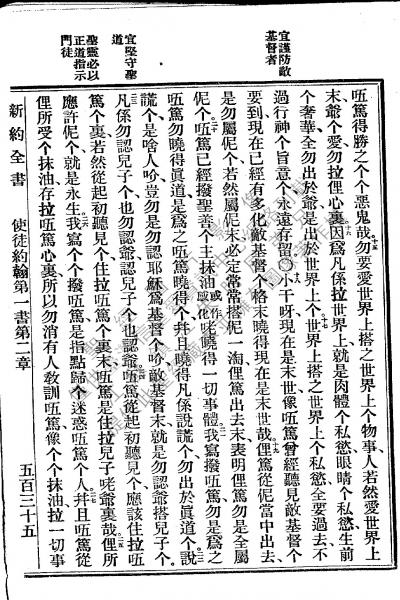 宜謹防敵
基督者
宜堅守聖
道
聖靈必以
正道指示
門徒
㕶篤得勝之个个惡鬼哉十五勿要愛世界上个物事人若然愛世界上
末爺个愛勿拉俚心裏十六因爲凡係拉世界上就是肉體个私慾眼睛个私慾生前
个奢華全勿出於爺是出於世界上个十七世界上搭之世界上个私慾全要過去不
過行神个旨意个永遠存留〇十八小干呀現在是末世像㕶篤曾經聽見敵基督个
要到現在已經有多化敵基督个格末曉得現在是末世哉十九俚篤從伲當中出去
是勿屬伲个若然屬伲末必定常常搭伲一淘俚篤出去末表明俚篤勿是全屬
伲个二十㕶篤已經撥聖善个主抹油或作咾曉得一切事體二一我寫撥㕶篤勿是爲之
㕶篤勿曉得眞道是爲之㕶篤曉得个幷且曉得凡係說謊个勿出於眞道个二二說
謊个是啥人吤豈勿是勿認耶穌爲基督个吤敵基督末就是勿認爺搭兒子个
二三凡係勿認兒子个也勿認爺認兒子个也認爺二四㕶篤從起初聽見个應該住拉㕶
篤个裏若然從起初聽見个住拉㕶篤个裏末㕶篤是住拉兒子咾爺裏哉二五俚所
應許伲个就是永生二六我寫个个撥㕶篤是指點歸个迷惑㕶篤个人二七幷且㕶篤從
俚所受个抹油存拉㕶篤心裏所以勿消有人敎訓㕶篤像个个抹油拉一切事
新約全書　使徒約翰第一書第二章　五百三十五